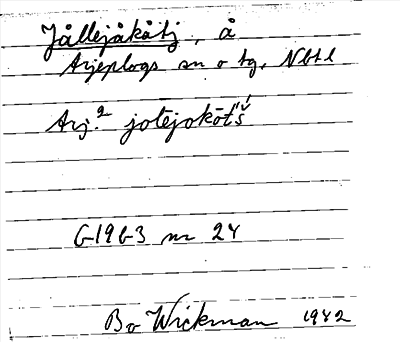 Jållejåkåtj, å
Arjeplogs sn o tg, Nbtl
Arj.² jolējokōt´š´
G 1963 nr 24
Bo Wickman 1942